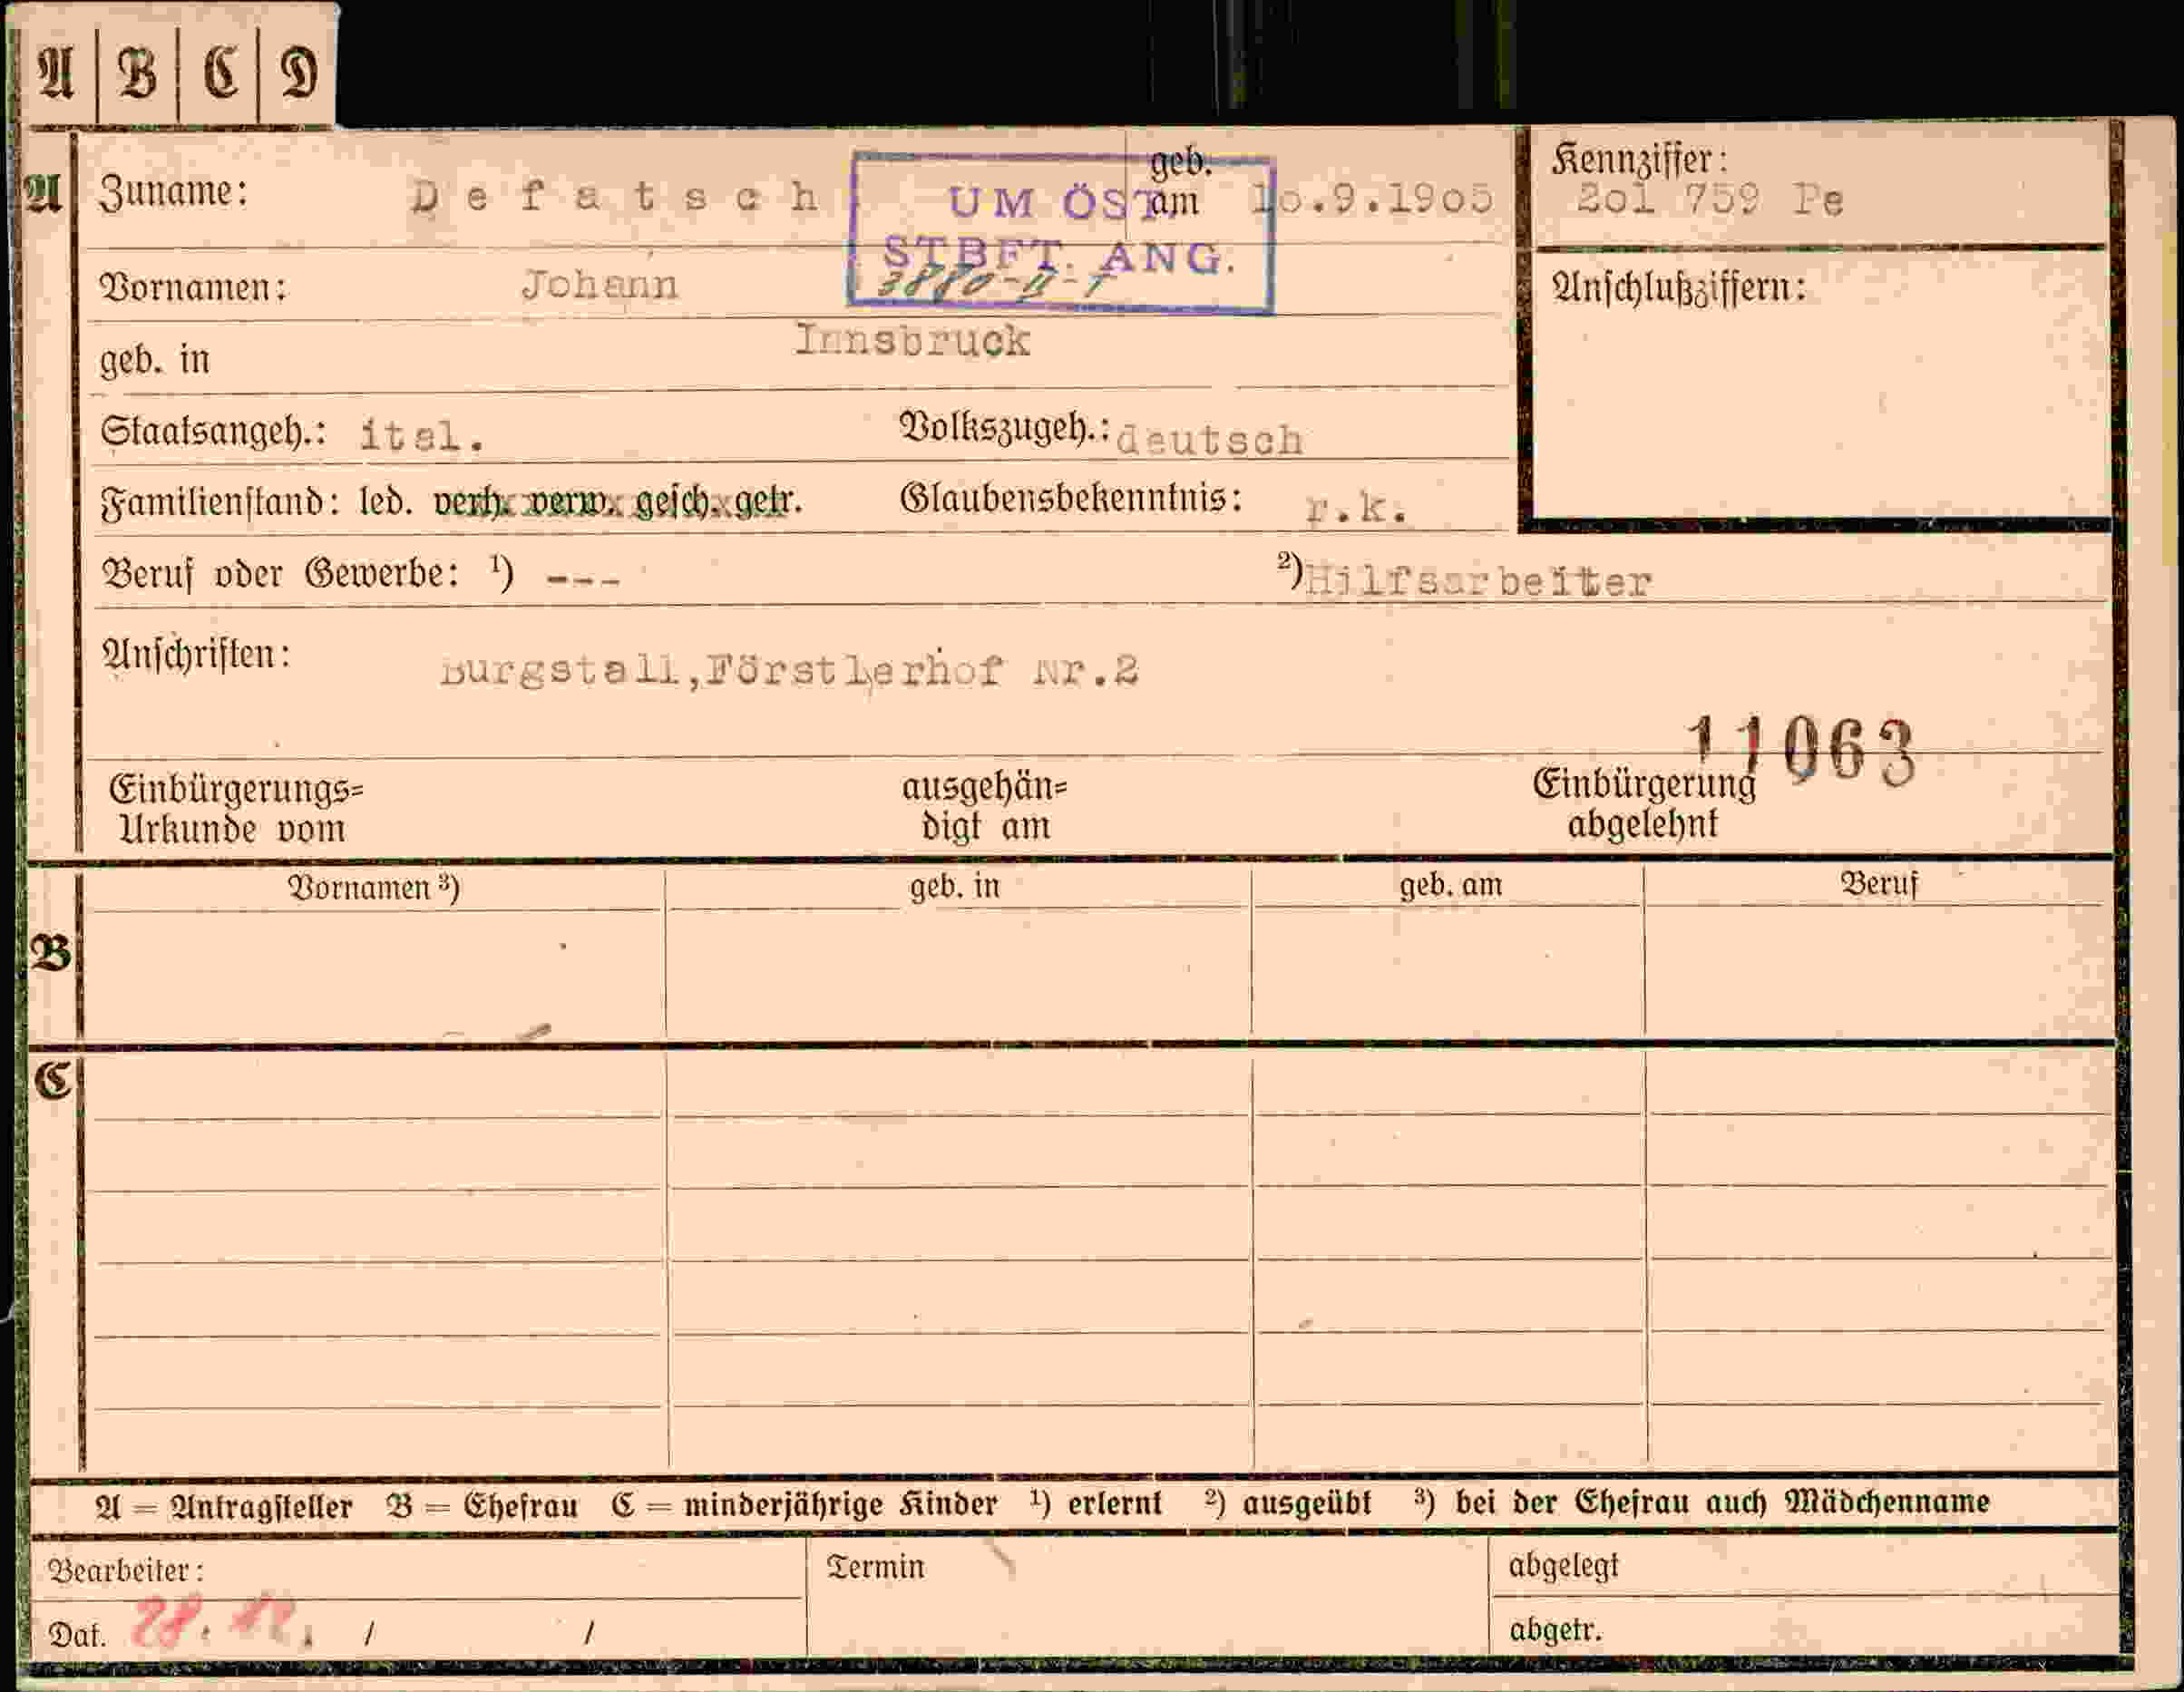 A B C D
A Zuname: Defatsch geb. am 10.9.1905 Kennziffer: 2o1 759 Pe
UM ÖST.
STBFT. ANG.
3880-II-T
Vornamen: Johann Anschlußziffern:
geb. in Innsbruck
Staatsangeh.: ital. Volkszugeh.: deutsch
Familienstand: led. verh. verw. gesch. getr. Glaubensbekenntnis: r.k.
Beruf oder Gewerbe: ¹) --- ²) Hilfsarbeiter
Anschriften: Burgstall, Förstlerhof Nr.2
11063
Einbürgerungs= ausgehän= Einbürgerung
Urkunde vom digt am abgelehnt
Vornamen ³) geb. in geb. am Beruf
B
C
A = Antragsteller B = Ehefrau C = minderjährige Kinder ¹) erlernt ²) ausgeübt ³) bei der Ehefrau auch Mädchenname
Bearbeiter: Termin abgelegt
Dat. 28. 12. / / abgetr.